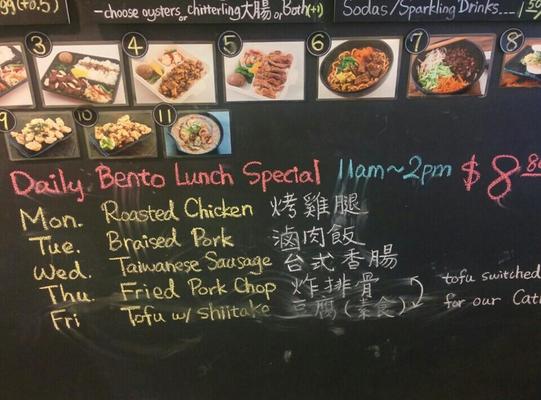 99(+0.5)
-choose oysters or chitterling大腸 or Both(+1)
Sodas/Sparkling Drinks...1
3 4 5 6 7 8
9 10 11
Daily Bento Lunch Special 11am~2pm $8.
Mon. Roasted Chicken 烤雞腿
Tue. Braised Pork 滷肉飯
Wed. Taiwanese Sausage 台式香腸
Thu. Fried Pork Chop 炸排骨 tofu switched
Fri Tofu w/ shiitake 豆腐(素食) for our Cat